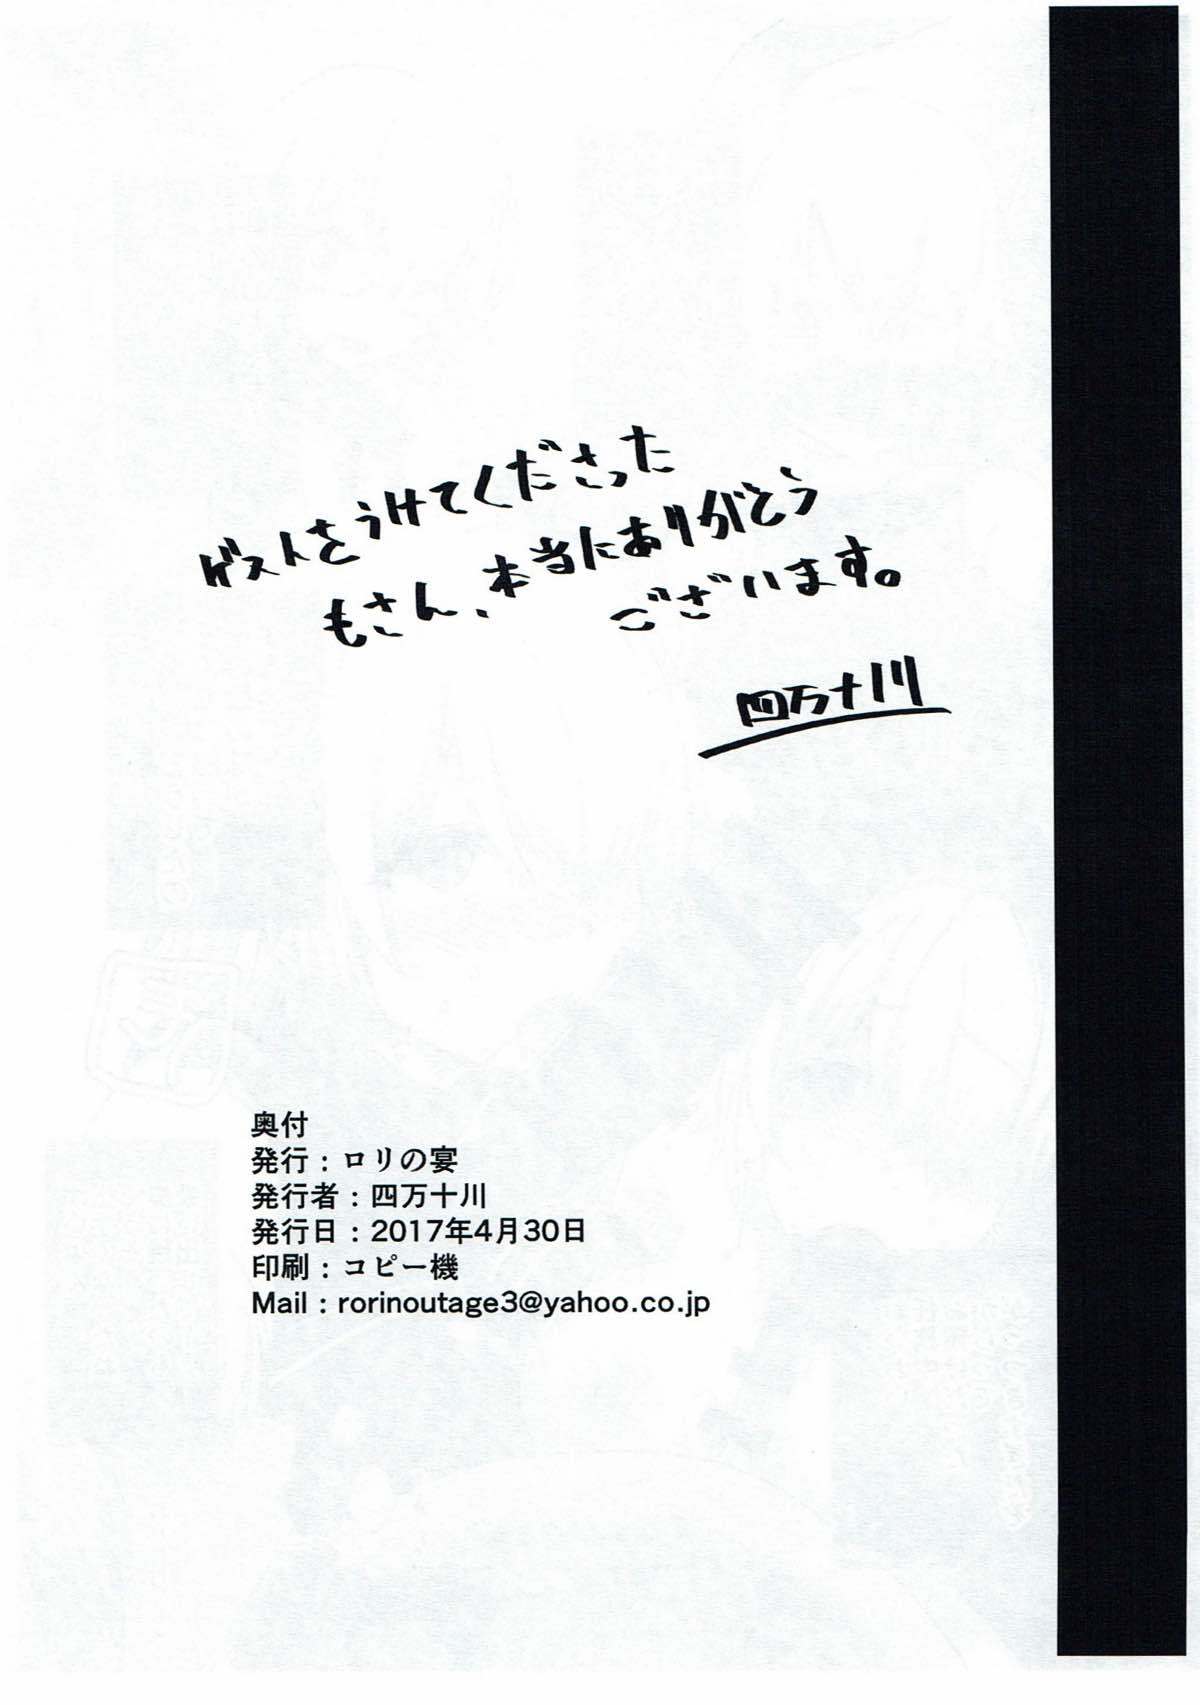 ゲストをうけてくださった
もさん、本当にありがとう
ございます。
四万十川
奥付
発行：ロリの宴
発行者：四万十川
発行日：2017年4月30日
印刷：コピー機
Mail：rorinoutage3@yahoo.co.jp